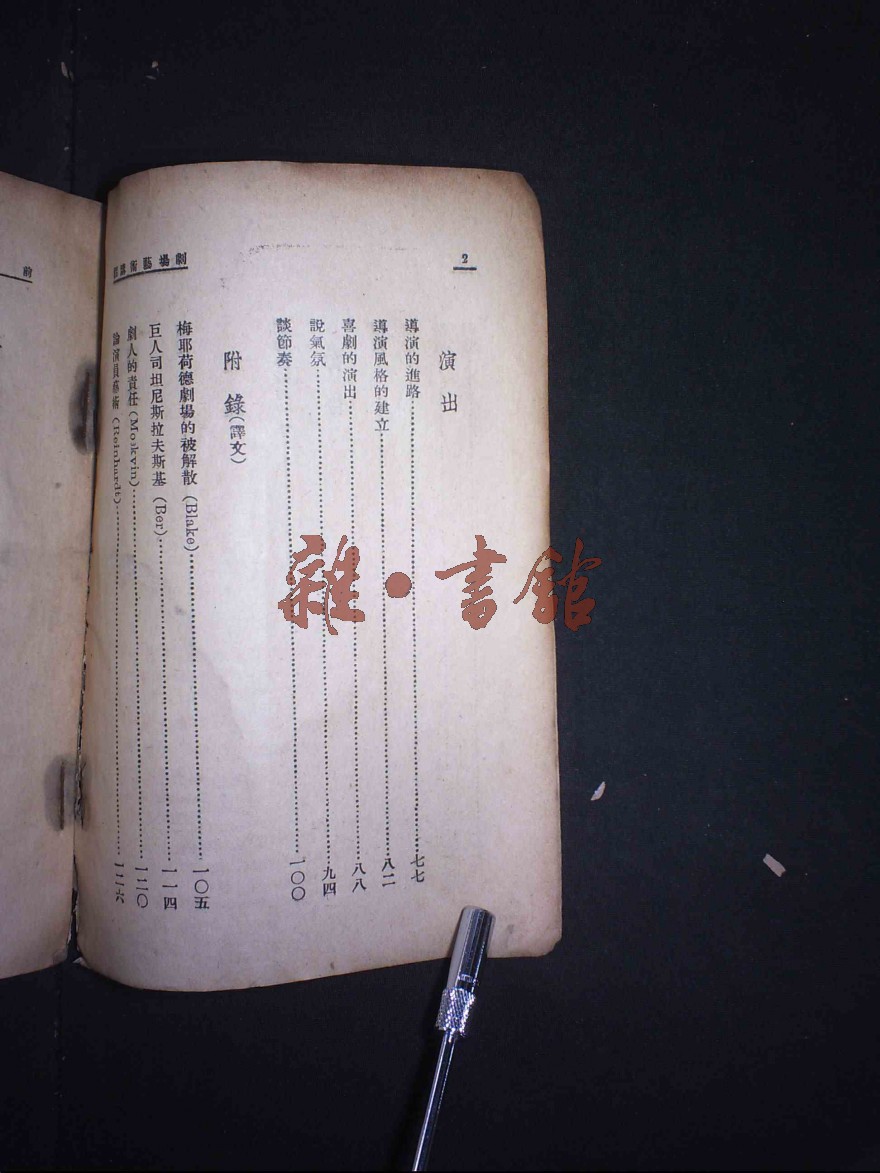 2
劇場藝術講話
演出
導演的進路 七七
導演風格的建立 八二
喜劇的演出 八八
說氣氛 九四
談節奏 一〇〇
附錄(譯文)
梅耶荷德劇場的被解散 (Blake) 一〇五
巨人司坦尼斯拉夫斯基 (Ber) 一一四
劇人的責任 (Moskvin) 一二〇
論演員藝術 (Reinhardt) 一二六
前
雜·書館